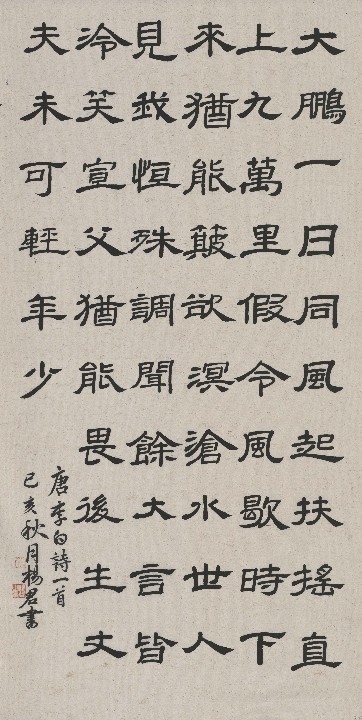 大鵬一日同風起扶搖直
上九萬里假令風歇時下
來猶能簸欲溟滄水世人
見我恒殊調聞餘大言皆
冷笑宣父猶能畏後生丈
夫未可輕年少
唐李白詩一首
己亥秋月楊君書